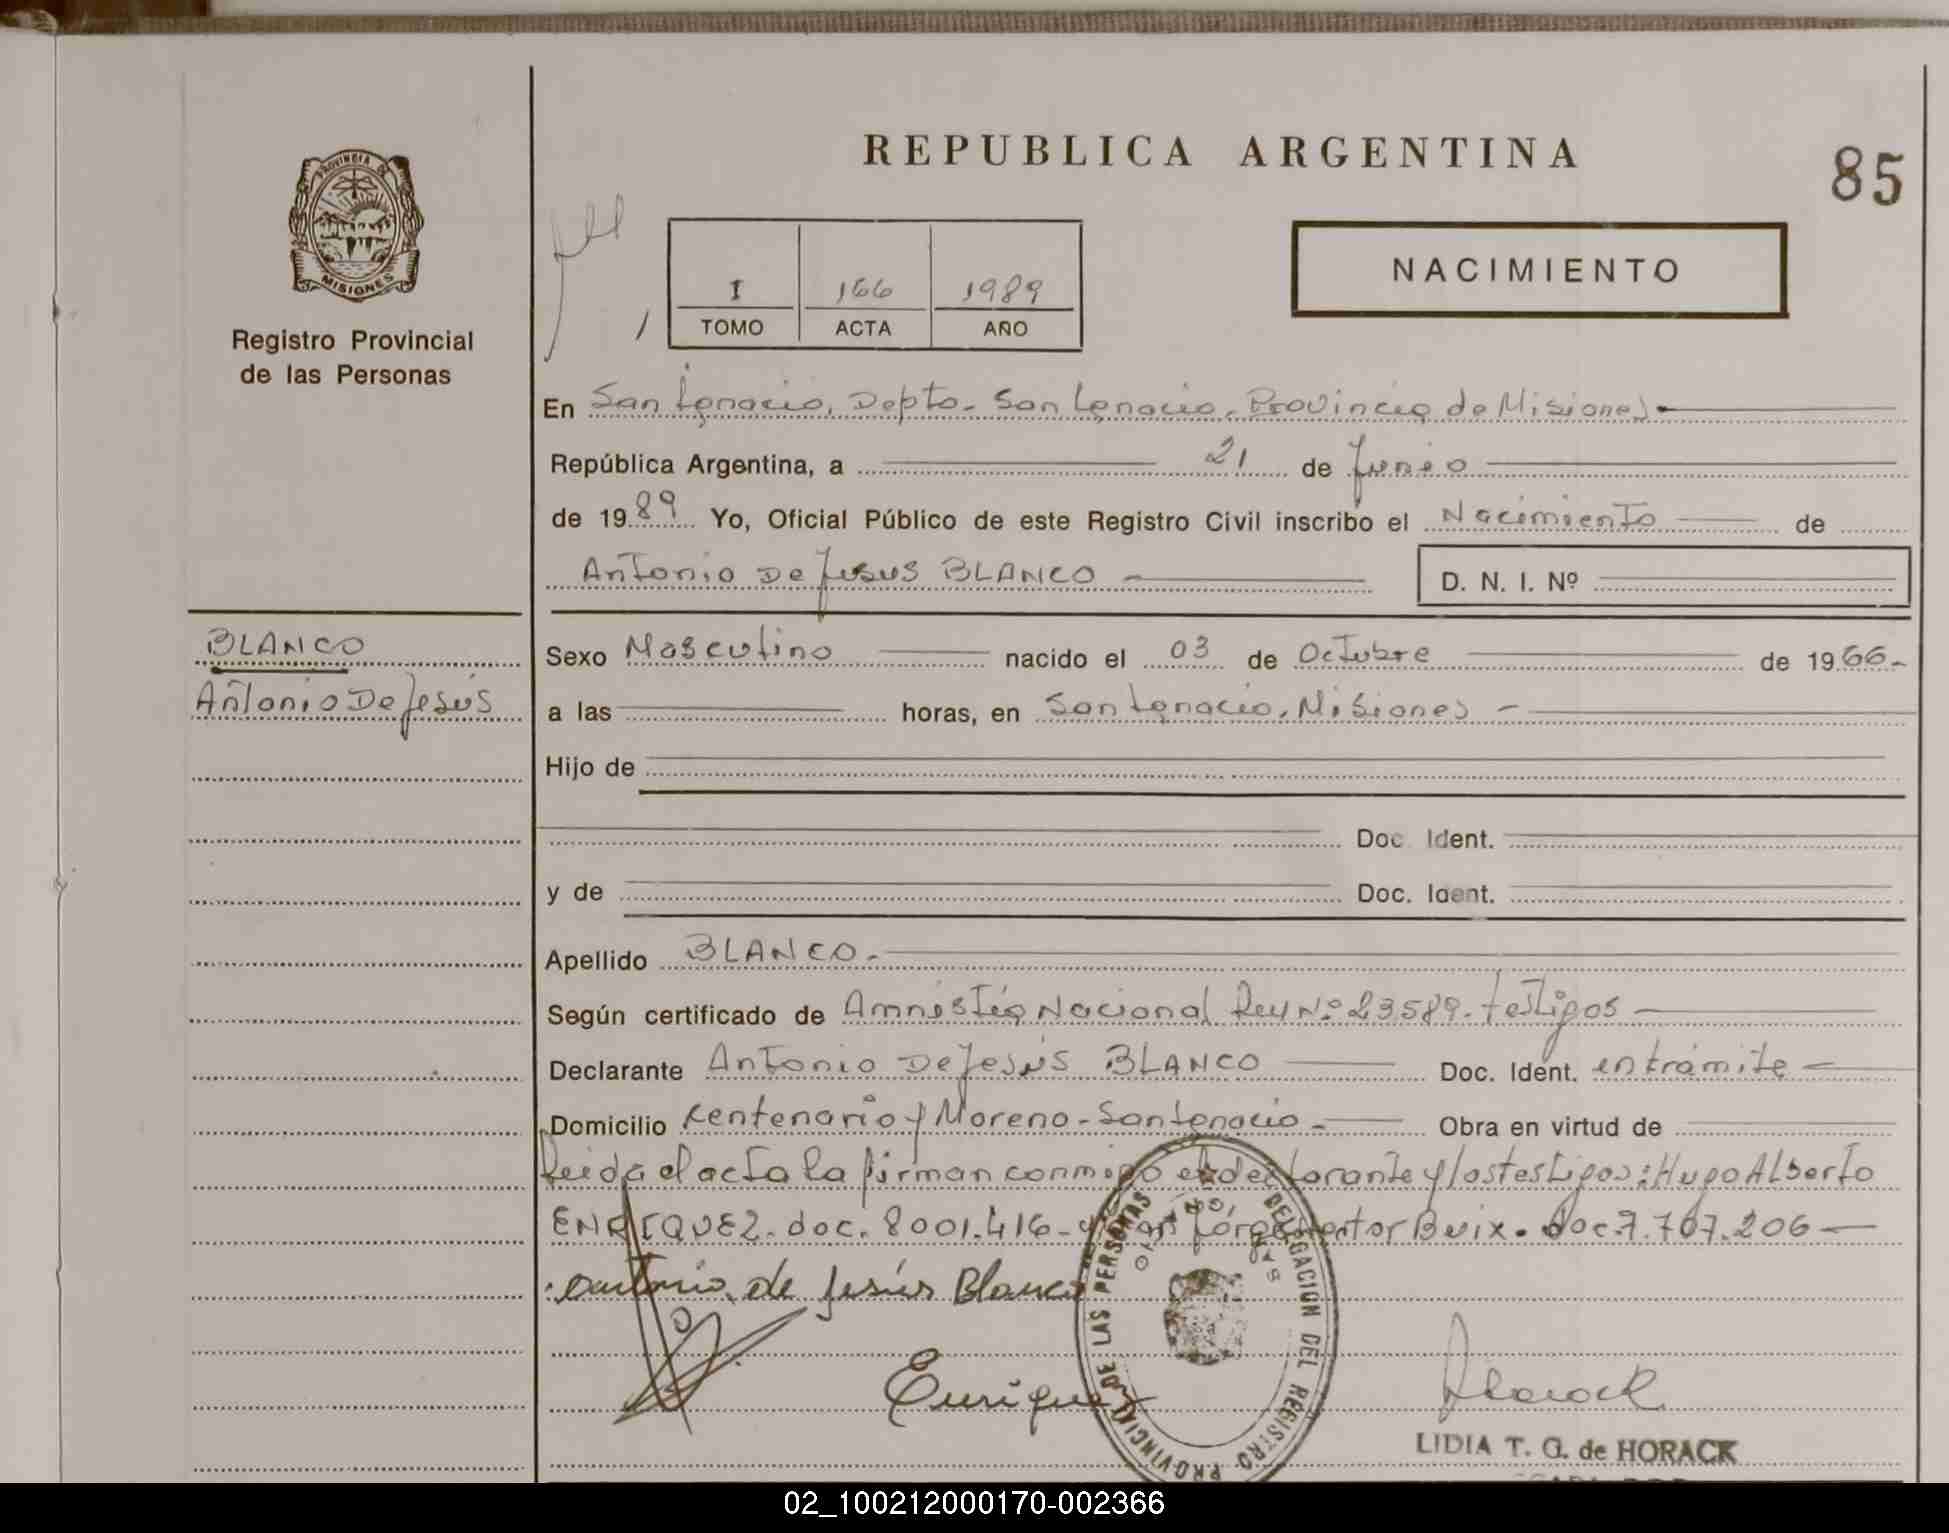 REPUBLICA ARGENTINA
85
PROVINCIA DE
MISIONES
Registro Provincial
de las Personas
I 166 1989
TOMO ACTA AÑO
NACIMIENTO
En San Ignacio, Depto. San Ignacio, Provincia de Misiones
República Argentina, a 21 de Junio
de 1989 Yo, Oficial Público de este Registro Civil inscribo el Nacimiento de
Antonio De Jesus BLANCO
D. N. I. Nº
BLANCO
Antonio De Jesús
Sexo Masculino nacido el 03 de Octubre de 1966
a las horas, en San Ignacio, Misiones
Hijo de
Doc. Ident.
y de Doc. Ident.
Apellido BLANCO.
Según certificado de Amnistía Nacional Ley Nº 23589. testigos
Declarante Antonio De Jesús BLANCO Doc. Ident. en trámite
Domicilio Centenario y Moreno - San Ignacio Obra en virtud de
Leida el acta la firman conmigo el declarante y los testigos: Hugo Alberto
ENRIQUEZ. doc. 8001.416 - Buix. doc. 7.767.206
Antonio de Jesús Blanco
Enriquez
DELEGACION DEL REGISTRO PROVINCIAL DE LAS PERSONAS
Horack
LIDIA T. G. de HORACK
02_100212000170-002366